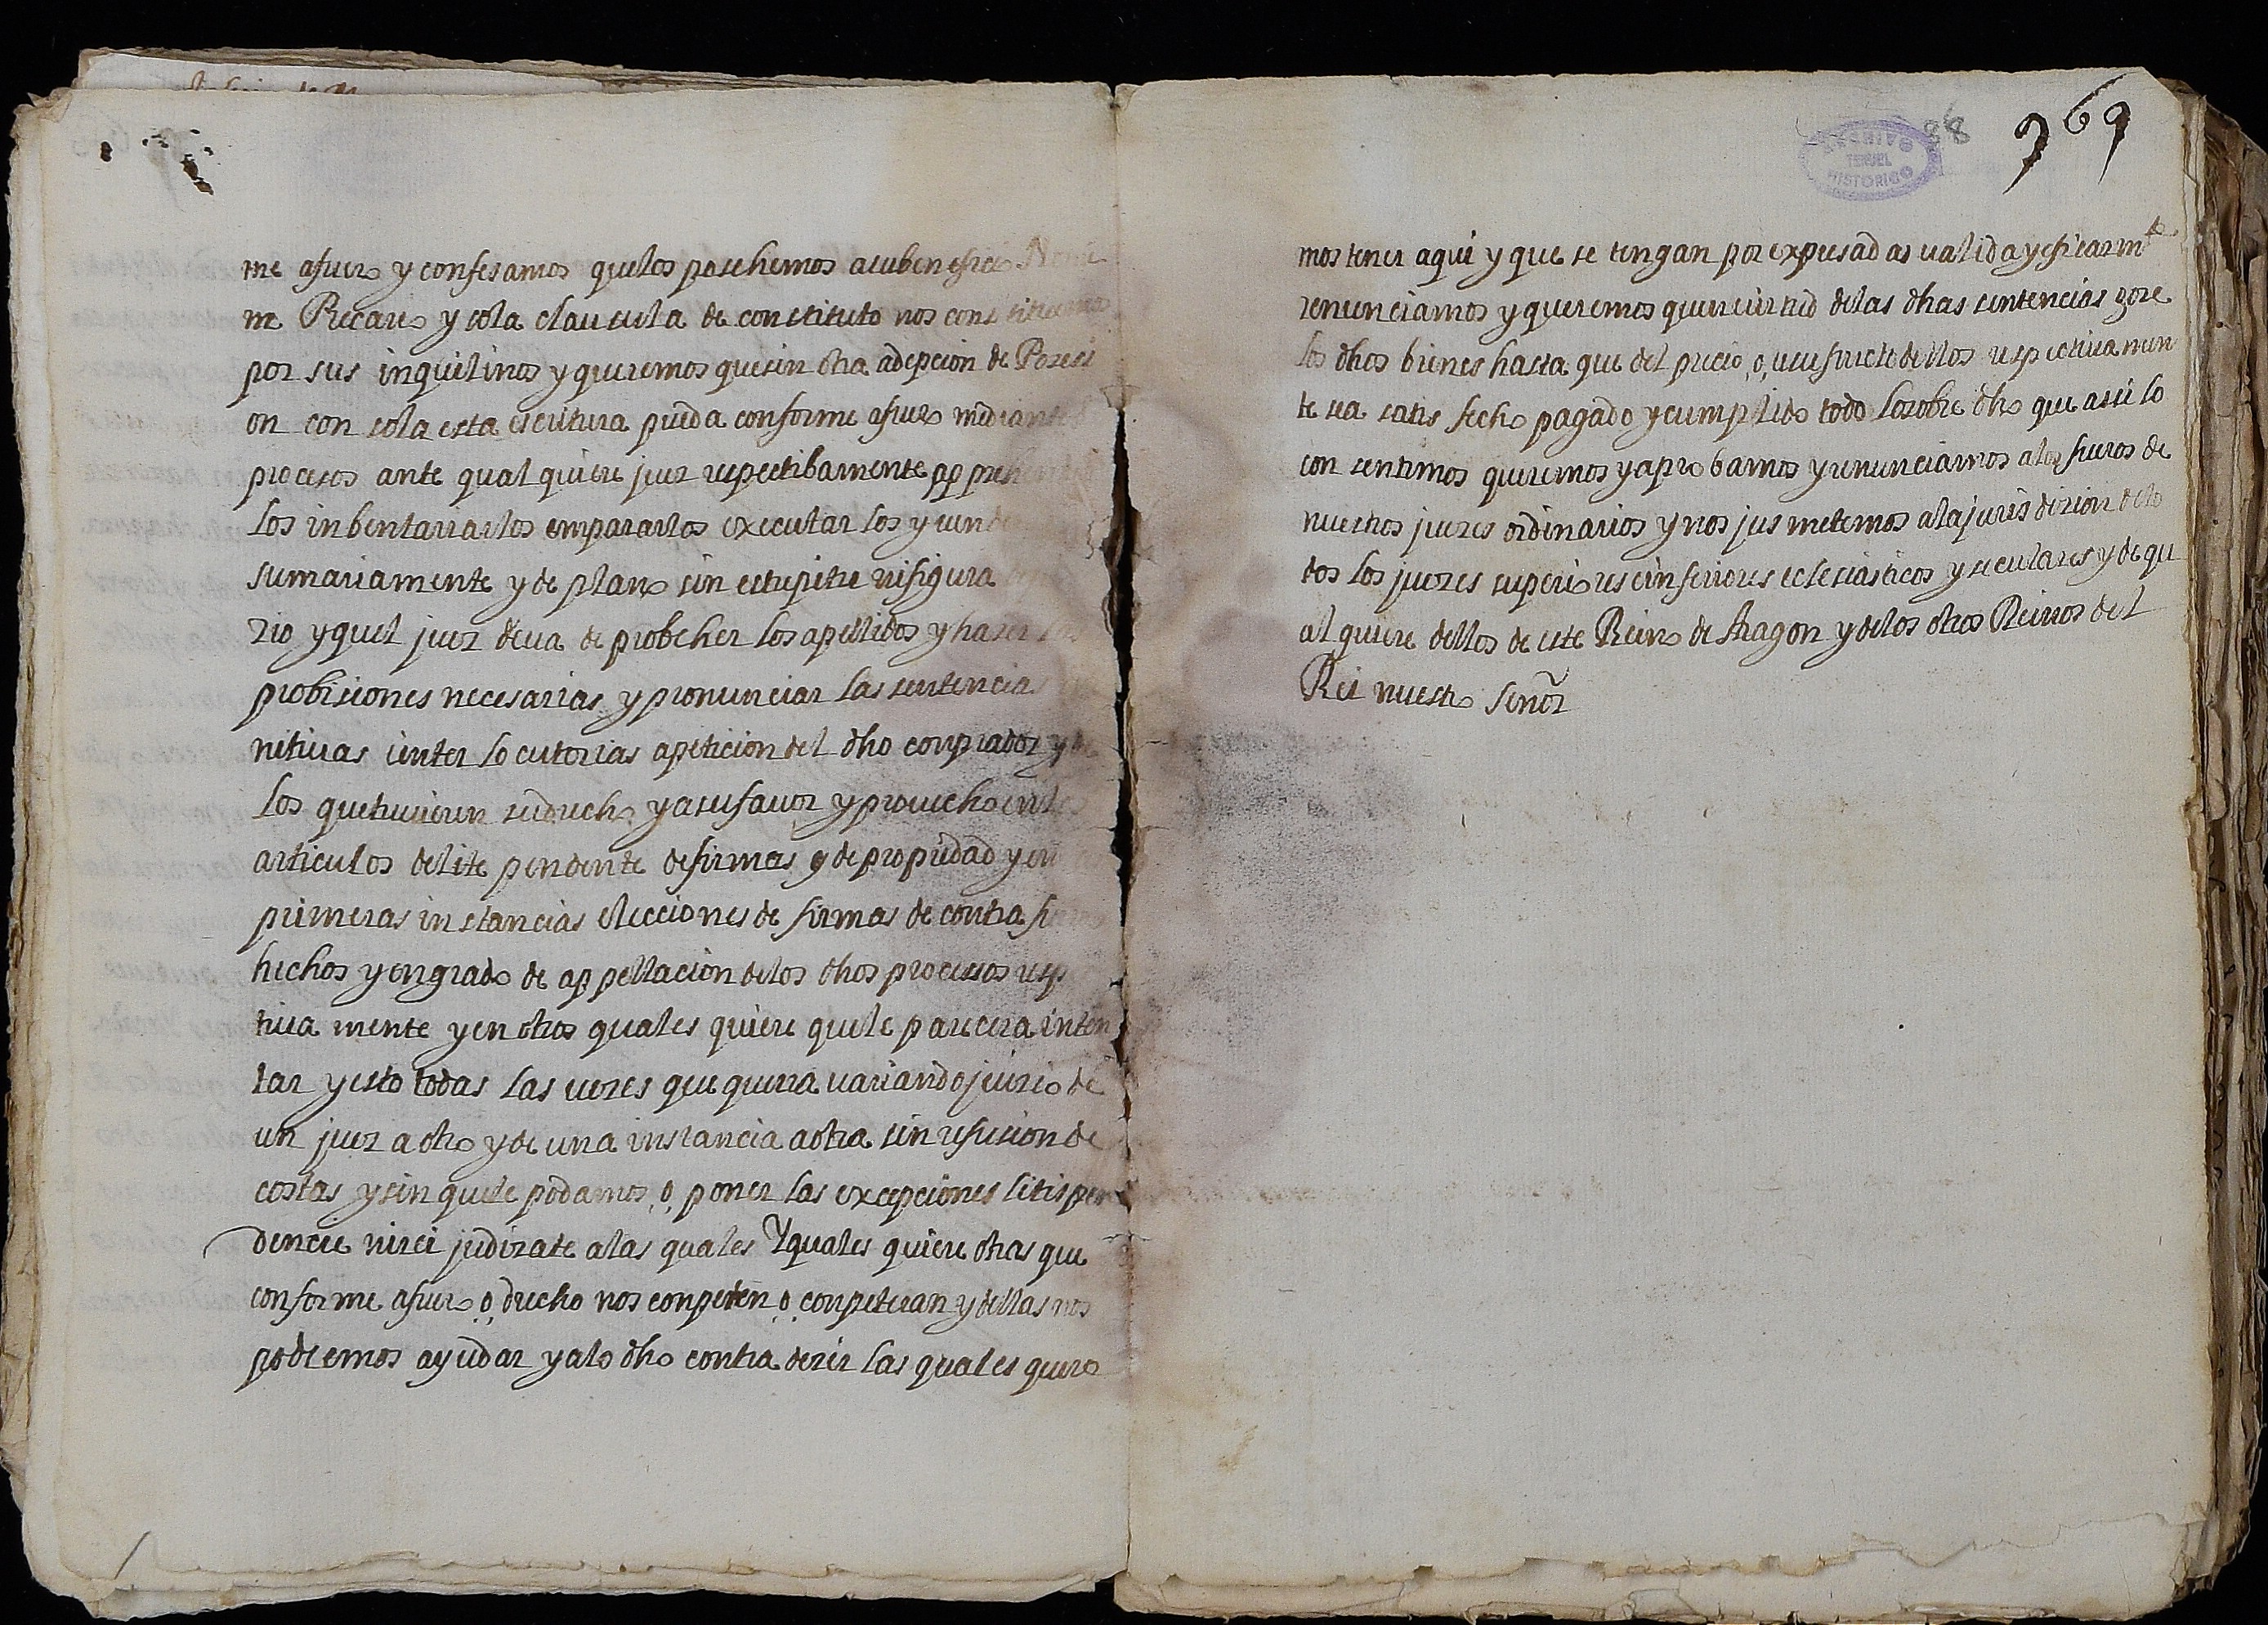 me afuero y confesamos quelos posehemos asubeneficio Nomi
ne Precario y sola clausula de constituto nos constituimos
por sus inquilinos y queremos quesin otra adepcion de Posesi
on con sola esta escritura pueda conforme afuero mediante
procesos ante qual quiere juez respectibamente apprehen
los inbentariarlos empararlos executar los y vend
sumariamente y de plano sin estrepitu nifigura
zio y quel juez deua de probeher los apellidos y haser las
probisiones necesarias y pronunciar las sentencias
nitiuas interlocutorias apeticion del dho conprador y de
los quetuuieren suderecho y asufauor y prouecho enlos
articulos delite pendente defirmas y de propiedad y en
primeras instancias elecciones de firmas de contra
hechos y engrado de appellacion delos dhos procesos resp
tiua mente y en otros quales quiere quele parecera inten
tar y esto todas las vezes que querra uariando juizio de
un juez a otro y de una instancia aotra sin refusion de
costas y sin quele podamos oponer las excepciones litispen
dencie nirei judizate alas quales y quales quiere otras que
conforme afuero o, drecho nos conpeten o, conpeteran y dellas nos
podremos ayudar y alo dho contra dezir las quales quere
88 369
ARCHIVO
TERUEL
HISTORICO
mos tener aqui y que se tengan por expresadas ualida y eficazmte
renunciamos y queremos quenuirtud delas dhas sentencias goze
los dhos bienes hasta que del precio o, usufructo dellos respectiuamen
te sea satis fecho pagado y cumplido todo losobre dho que asi lo
con sentimos queremos y aprobamos y renunciamos alos fueros de
nuestros juezes ordinarios y nos jusmetemos alajurisdizion deto
dos los juezes superiores einferiores eclesiasticos y seculares y de qu
al quiere dellos de este Reino de Aragon y delos otros Reinos del
Rei nuestro señor